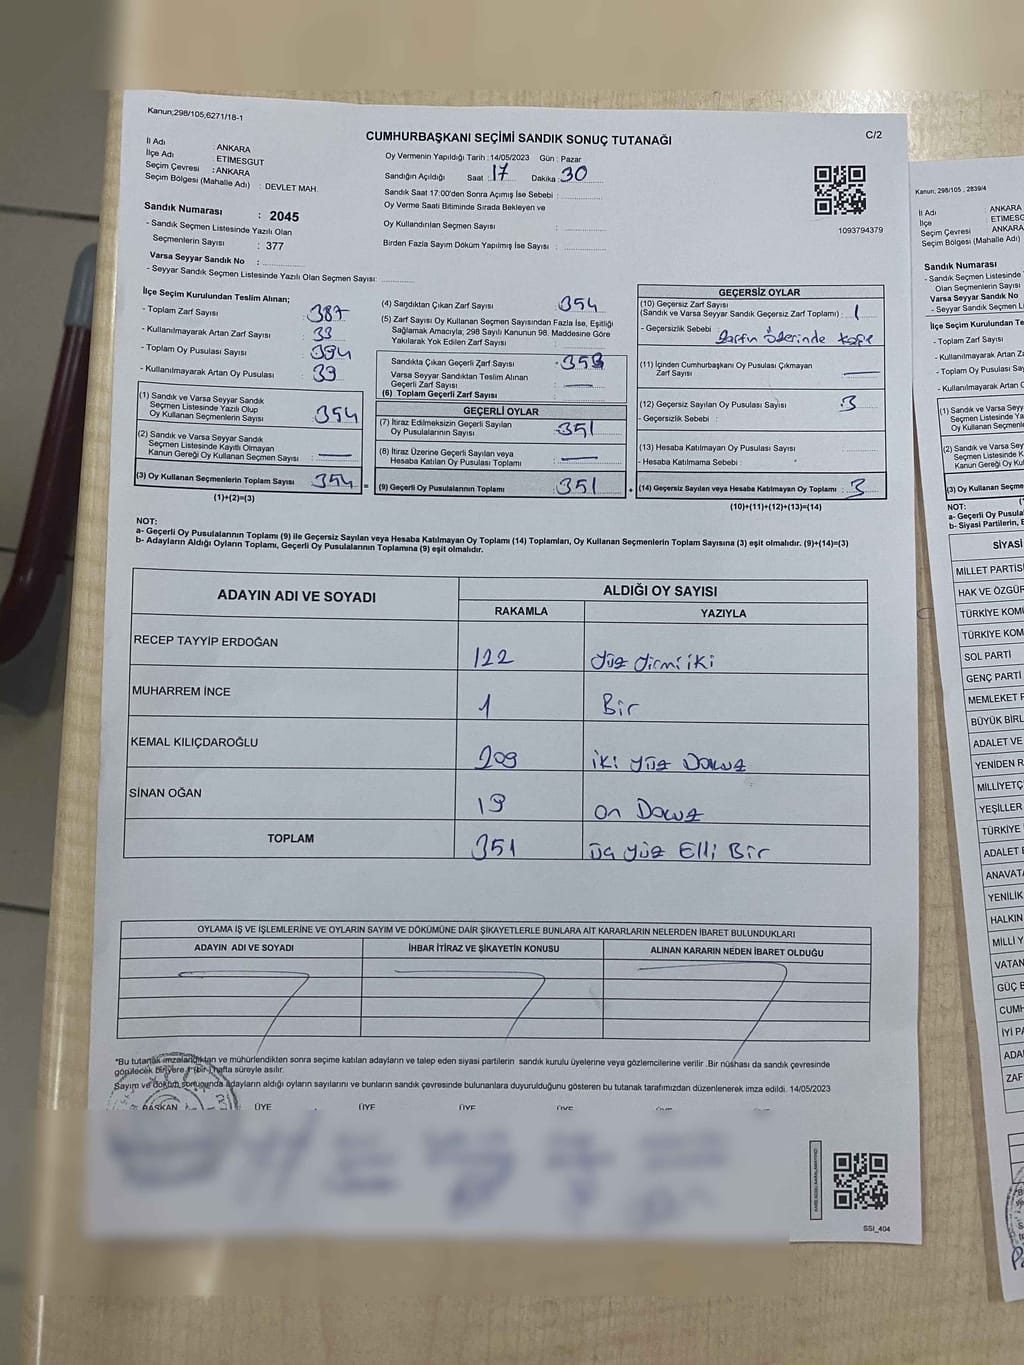 Kanun;298/105;6271/18-1
CUMHURBAŞKANI SEÇİMİ SANDIK SONUÇ TUTANAĞI
C/2
İl Adı : ANKARA
İlçe Adı : ETİMESGUT
Seçim Çevresi : ANKARA
Seçim Bölgesi (Mahalle Adı) : DEVLET MAH.
Oy Vermenin Yapıldığı Tarih :14/05/2023 Gün : Pazar
Sandığın Açıldığı Saat : 17 Dakika : 30
Sandık Saat 17:00'den Sonra Açımış İse Sebebi :
Oy Verme Saati Bitiminde Sırada Bekleyen ve
Oy Kullandırılan Seçmen Sayısı :
Birden Fazla Sayım Döküm Yapılmış İse Sayısı :
1093794379
Sandık Numarası : 2045
- Sandık Seçmen Listesinde Yazılı Olan
Seçmenlerin Sayısı : 377
Varsa Seyyar Sandık No :
- Seyyar Sandık Seçmen Listesinde Yazılı Olan Seçmen Sayısı:
İlçe Seçim Kurulundan Teslim Alınan;
- Toplam Zarf Sayısı : 387
- Kullanılmayarak Artan Zarf Sayısı : 33
- Toplam Oy Pusulası Sayısı : 394
- Kullanılmayarak Artan Oy Pusulası : 39
(1) Sandık ve Varsa Seyyar Sandık
Seçmen Listesinde Yazılı Olup
Oy Kullanan Seçmenlerin Sayısı : 354
(2) Sandık ve Varsa Seyyar Sandık
Seçmen Listesinde Kayıtlı Olmayan
Kanun Gereği Oy Kullanan Seçmen Sayısı :
(3) Oy Kullanan Seçmenlerin Toplam Sayısı : 354
(1)+(2)=(3)
(4) Sandıktan Çıkan Zarf Sayısı : 354
(5) Zarf Sayısı Oy Kullanan Seçmen Sayısından Fazla İse, Eşitliği
Sağlamak Amacıyla; 298 Sayılı Kanunun 98. Maddesine Göre
Yakılarak Yok Edilen Zarf Sayısı :
Sandıkta Çıkan Geçerli Zarf Sayısı : 353
Varsa Seyyar Sandıktan Teslim Alınan
Geçerli Zarf Sayısı :
(6) Toplam Geçerli Zarf Sayısı
GEÇERLİ OYLAR
(7) İtiraz Edilmeksizin Geçerli Sayılan
Oy Pusulalarının Sayısı : 351
(8) İtiraz Üzerine Geçerli Sayılan veya
Hesaba Katılan Oy Pusulası Toplamı :
(9) Geçerli Oy Pusulalarının Toplamı : 351
GEÇERSİZ OYLAR
(10) Geçersiz Zarf Sayısı
(Sandık ve Varsa Seyyar Sandık Geçersiz Zarf Toplamı) : 1
- Geçersizlik Sebebi : Zarfın üzerinde
(11) İçinden Cumhurbaşkanı Oy Pusulası Çıkmayan
Zarf Sayısı :
(12) Geçersiz Sayılan Oy Pusulası Sayısı : 3
- Geçersizlik Sebebi :
(13) Hesaba Katılmayan Oy Pusulası Sayısı :
- Hesaba Katılmama Sebebi :
(14) Geçersiz Sayılan veya Hesaba Katılmayan Oy Toplamı : 3
(10)+(11)+(12)+(13)=(14)
NOT:
a- Geçerli Oy Pusulalarının Toplamı (9) ile Geçersiz Sayılan veya Hesaba Katılmayan Oy Toplamı (14) Toplamları, Oy Kullanan Seçmenlerin Toplam Sayısına (3) eşit olmalıdır. (9)+(14)=(3)
b- Adayların Aldığı Oyların Toplamı, Geçerli Oy Pusulalarının Toplamına (9) eşit olmalıdır.
ADAYIN ADI VE SOYADI
ALDIĞI OY SAYISI
RAKAMLA YAZIYLA
RECEP TAYYİP ERDOĞAN 122 Yüz Yirmi iki
MUHARREM İNCE 1 Bir
KEMAL KILIÇDAROĞLU 209 iki yüz Dokuz
SİNAN OĞAN 19 on Dokuz
TOPLAM 351 üç yüz Elli Bir
OYLAMA İŞ VE İŞLEMLERİNE VE OYLARIN SAYIM VE DÖKÜMÜNE DAİR ŞİKAYETLERLE BUNLARA AİT KARARLARIN NELERDEN İBARET BULUNDUKLARI
ADAYIN ADI VE SOYADI
İHBAR İTİRAZ VE ŞİKAYETİN KONUSU
ALINAN KARARIN NEDEN İBARET OLDUĞU
*Bu tutanak imzalandıktan ve mühürlendikten sonra seçime katılan adayların ve talep eden siyasi partilerin sandık kurulu üyelerine veya gözlemcilerine verilir .Bir nüshası da sandık çevresinde
görülecek bir yere 1 (bir) hafta süreyle asılır.
Sayım ve döküm sonucunda adayların aldığı oyların sayılarını ve bunların sandık çevresinde bulunanlara duyurulduğunu gösteren bu tutanak tarafımızdan düzenlenerek imza edildi. 14/05/2023
BAŞKAN ÜYE ÜYE ÜYE ÜYE ÜYE
SSI_404
Kanun; 298/105 , 2839/4
İl Adı : ANKARA
İlçe : ETİMESG
Seçim Çevresi : ANKARA
Seçim Bölgesi (Mahalle Adı)
Sandık Numarası
- Sandık Seçmen Listesinde
Olan Seçmenlerin Sayısı
Varsa Seyyar Sandık No
- Seyyar Sandık Seçmen L
İlçe Seçim Kurulundan Te
- Toplam Zarf Sayısı
- Kullanılmayarak Artan Z
- Toplam Oy Pusulası Sa
- Kullanılmayarak Artan C
(1) Sandık ve Varsa Seyy
Seçmen Listesinde Ya
Oy Kullanan Seçmenl
(2) Sandık ve Varsa Se
Seçmen Listesinde K
Kanun Gereği Oy Kull
(3) Oy Kullanan Seçme
NOT:
a- Geçerli Oy Pusula
b- Siyasi Partilerin, E
SİYASİ
MİLLET PARTİSİ
HAK VE ÖZGÜR
TÜRKİYE KOMÜ
TÜRKİYE KOM
SOL PARTİ
GENÇ PARTİ
MEMLEKET P
BÜYÜK BİRL
ADALET VE
YENİDEN R
MİLLİYETÇ
YEŞİLLER
TÜRKİYE
ADALET B
ANAVATA
YENİLİK
HALKIN
MİLLİ Y
VATAN
GÜÇ B
CUMH
İYİ PA
ADA
ZAF